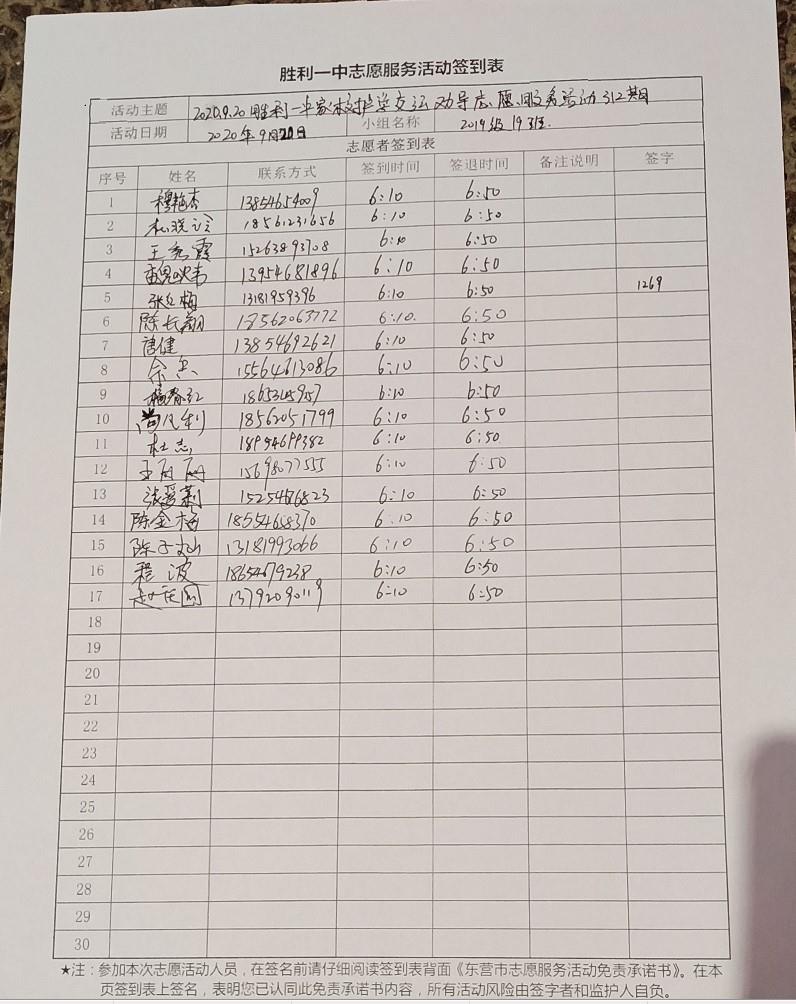 胜利一中志愿服务活动签到表
活动主题 2020.9.20胜利一中家校护学交运劝导志愿服务活动312期
活动日期 2020年9月20日 小组名称 2019级19班.
志愿者签到表
序号 姓名 联系方式 签到时间 签退时间 备注说明 签字
1 穆艳杰 13854654009 6:10 6:50
2 18561231656 6:10 6:50
3 王秀霞 15263893708 6:10 6:50
4 13954681896 6:10 6:50
5 张红梅 13181959396 6:10 6:50 1269
6 陈长翔 18562063772 6:10. 6:50
7 唐健 13854692621 6:10 6:50
8 15564613086 6:10 6:50
9 6:10 6:50
10 尚凡利 18562051799 6:10 6:50
11 杜志 18954699382 6:10 6:50
12 王丽丽 15698077555 6:10 6:50
13 张爱莉 15254676823 6:10 6:50
14 陈金梅 18554668370 6:10 6:50
15 13181993066 6:10 6:50
16 程波 18654679238 6:10 6:50
17 13792090119 6:10 6:50
18
19
20
21
22
23
24
25
26
27
28
29
30
★注:参加本次志愿活动人员,在签名前请仔细阅读签到表背面《东营市志愿服务活动免责承诺书》。在本
页签到表上签名,表明您已认同此免责承诺书内容,所有活动风险由签字者和监护人自负。